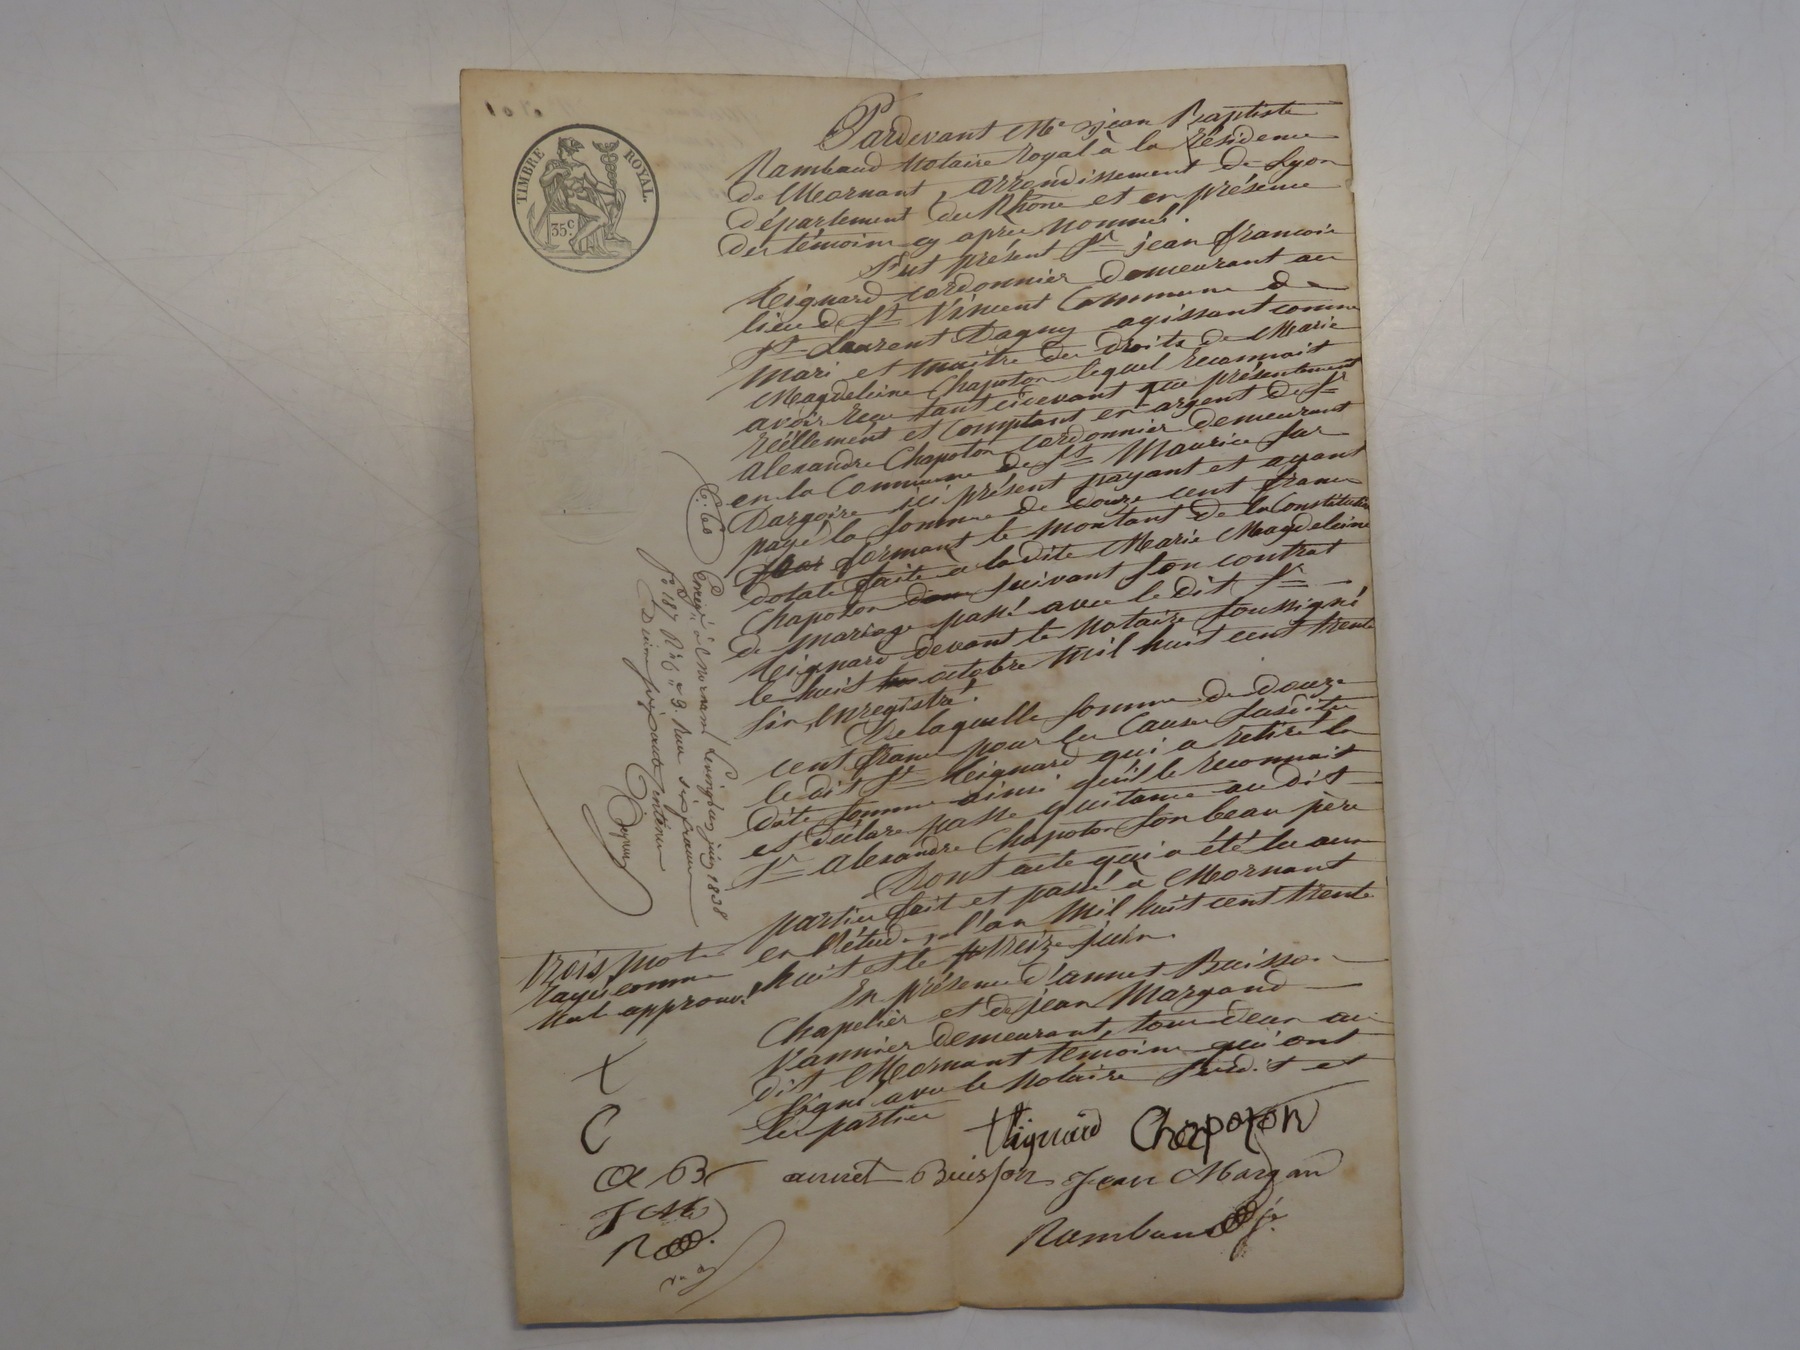 TIMBRE ROYAL.
35 c.
Pardevant Me jean Baptiste
Rambaud Notaire royal à la résidence
de Mornant, arrondissement de Lyon
département du Rhône et en présence
des témoins cy après nommés.
fut présent Sr jean françois
cordonnier demeurant au
lieu de St Vincent Commune de
St Laurent Dagny agissant comme
mari et maître des droits de Marie
Magdeleine Chapoton lequel reconnait
avoir reçu tant cidevant que présentement
réellement et comptant en argent de Sr
alexandre Chapoton cordonnier demeurant
en la Commune de St Maurice sur
Dargoire ici présent payant et ayant
payé la somme de douze cent francs
formant le montant de la Constitution
dotale faite a la dite Marie Magdeleine
Chapoton suivant son contrat
de mariage passé avec le dit Sr
devant le notaire soussigné
le huit octobre mil huit cent trente
six enregistré.
De laquelle somme de douze
cent francs pour les causes susdites
le dit Sr qui a retiré la
dite somme ainsi qu'il le reconnait
et déclare passe quitance au dit
Sr alexandre Chapoton son beau père
Dont acte qui a été lu aux
parties fait et passé à Mornant
en l'étude, l'an mil huit cent trente
huit et le treize juin.
En présence d'annet Buisson
Chapelier et de jean Margand
Vannier demeurant, tous deux au
dit Mornant temoins qui ont
signé avec le notaire susdit et
les parties
Chapoton
annet Buisson Jean Margand
Rambaud
trois mots
rayés comme
nul approuvé
X
C
a B
J M
R
Enregé à Mornant Le vingt cinq juin 1838
fo 187 Ro Reçu six francs
Dixième soixante centimes